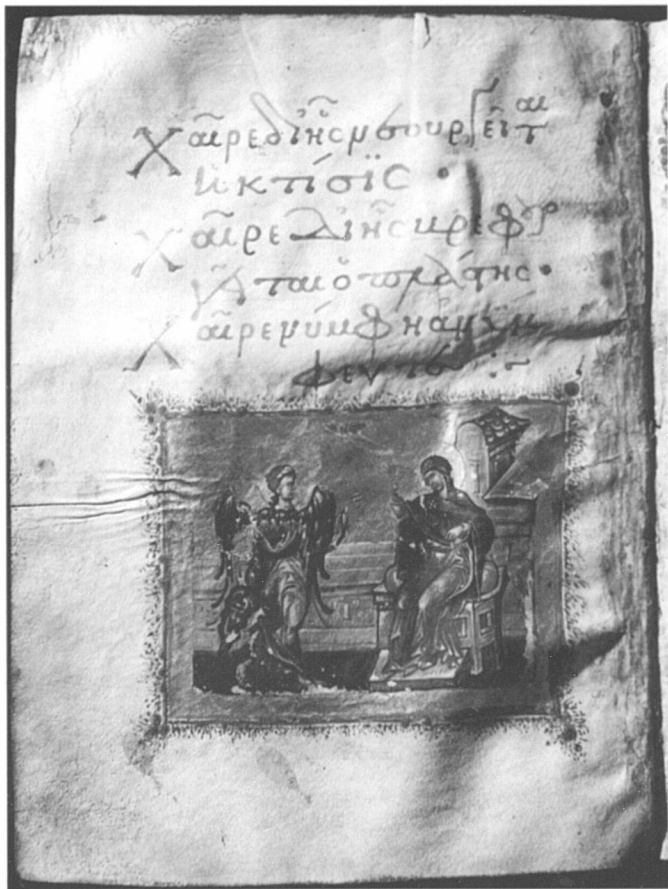 Χαῖρε δι' ἧς νεουργεῖται
ἡ κτίσϊς ·
Χαῖρε δι' ἧς βρεφουρ
γεῖται ὁ πλάστης ·
Χαῖρε νύμφη ἀνύμ
φευτε :~